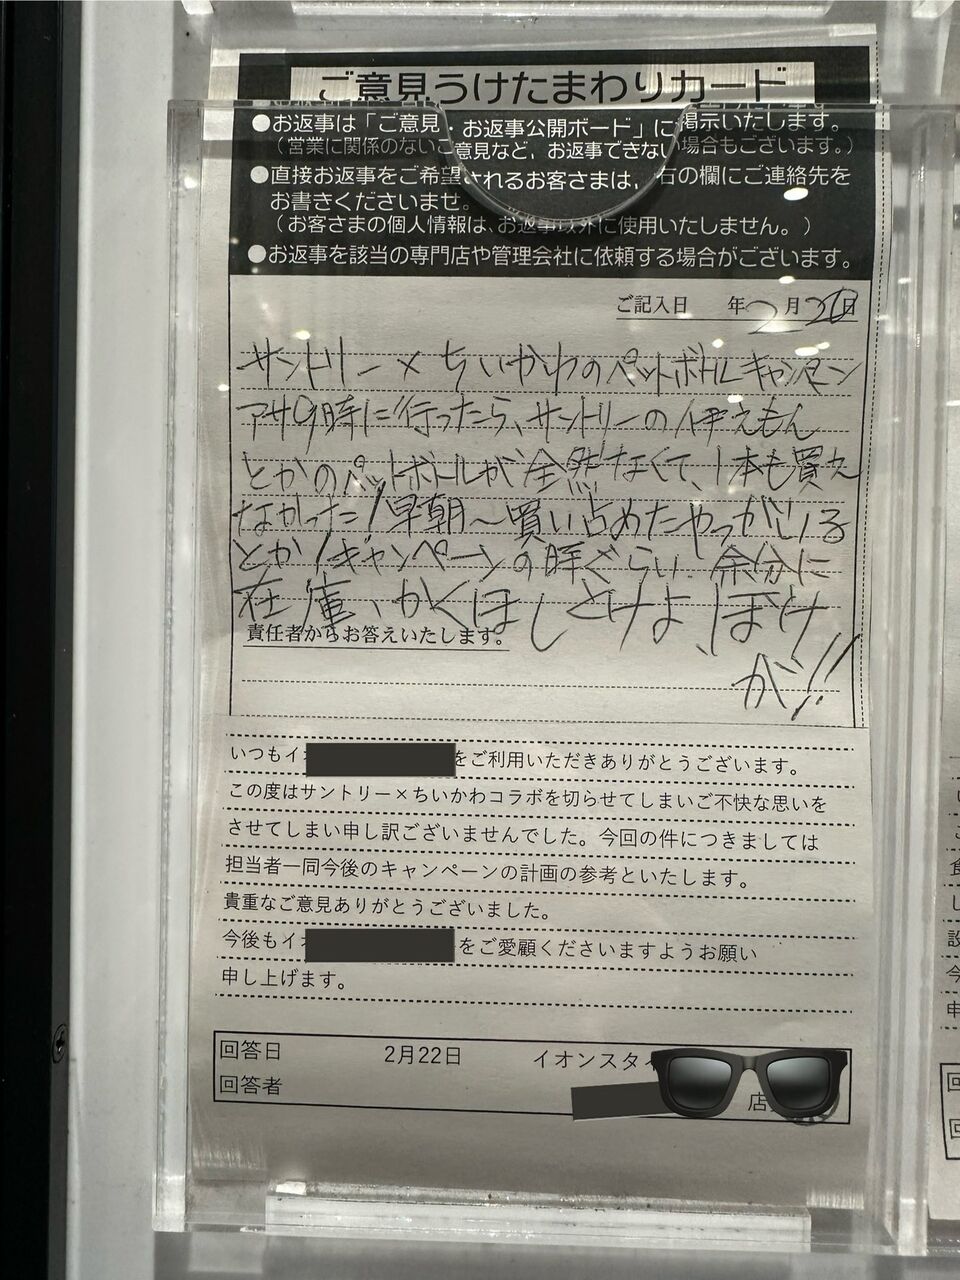 ご意見うけたまわりカード
●お返事は「ご意見・お返事公開ボード」に掲示いたします。
（営業に関係のないご意見など、お返事できない場合もございます。）
●直接お返事をご希望されるお客さまは、右の欄にご連絡先を
お書きくださいませ。
（お客さまの個人情報は、お返事以外に使用いたしません。）
●お返事を該当の専門店や管理会社に依頼する場合がございます。
ご記入日 年2月20日
サントリー×ちいかわのペットボトルキャンペーン
アサ9時に行ったら、サントリーの伊えもん
とかのペットボトルが全然なくて、1本も買え
なかった!早朝〜買い占めたやつがいる
とか!キャンペーンの時ぐらい余分に
在庫、かくほしとけよ、ぼけ
が!!
責任者からお答えいたします。
いつもイオ をご利用いただきありがとうございます。
この度はサントリー×ちいかわコラボを切らせてしまいご不快な思いを
させてしまい申し訳ございませんでした。今回の件につきましては
担当者一同今後のキャンペーンの計画の参考といたします。
貴重なご意見ありがとうございました。
今後もイオ をご愛顧くださいますようお願い
申し上げます。
回答日 2月22日 イオンスタイ
回答者 店